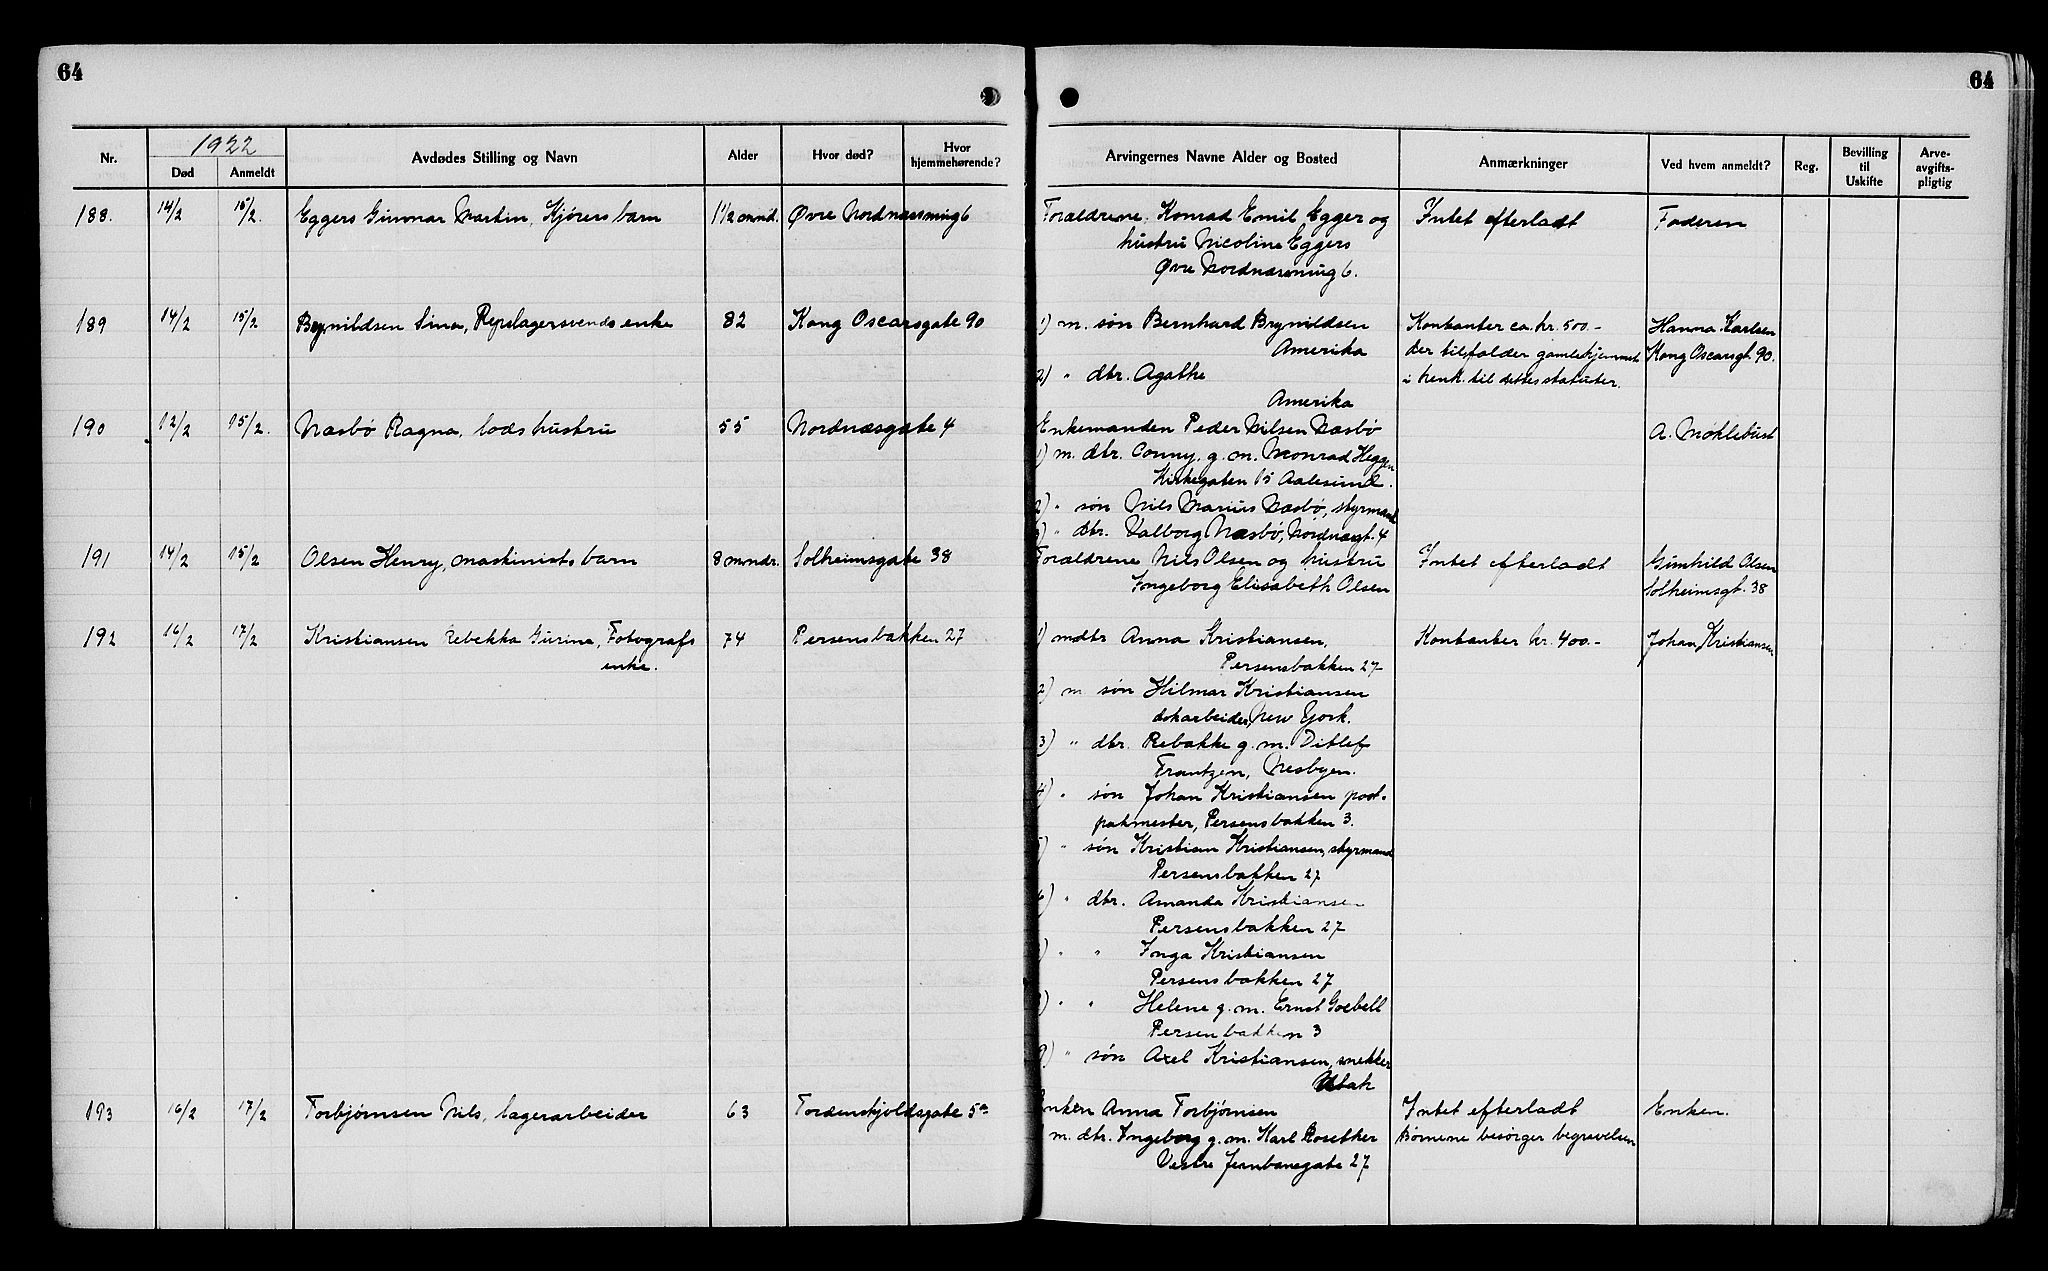 64
64
1922
Nr.
Død
Anmeldt
Avdødes Stilling og Navn
Alder
Hvor død?
Hvor hjemmehørende?
Arvingernes Navne Alder og Bosted
Anmærkninger
Ved hvem anmeldt?
Reg.
Bevilling til Uskifte
Arve-avgifts-pligtig
188. 14/2 15/2. Eggers Gunnar Martin, Kjørers barn 1 1/2 mnd. Øvre Nordnæssmug 6 Forældrene: Konrad Emil Egger og Intet efterladt Faderen
hustru Nicoline Eggers
Øvre Nordnæssmug 6.
189 14/2 15/2 Brynildsen Sina, Repslagersvends enke 82 Kong Oscarsgate 90 1) m. søn Bernhard Brynildsen Kontanter ca. kr. 500.- Hanna Karlsen
Amerika der tilfalder gamlehjemmet Kong Oscarsgt. 90.
2) " dtr. Agathe i henh. til dettes statuter.
Amerika
190 12/2 15/2. Næsbø Ragna, lods hustru 55 Nordnæsgate 4 Enkemanden Peder Nilsen Næsbø A. Møklebust
1) m. dtr. Conny, g. m. Monrad Heggen
Kirkegaten 15 Aalesund.
2) " søn Nils Marius Næsbø, styrmand
3) " dtr. Valborg Næsbø, Nordnæsgt. 4
191 14/2 15/2 Olsen Henry, maskinists barn 8 mndr. Solheimsgate 38 Forældrene Nils Olsen og hustru Intet efterladt Gunhild Olsen
Ingeborg Elisabeth Olsen Solheimsgt. 38
192 16/2 17/2 Kristiansen Rebekka Gurine, Fotografs 74 Persensbakken 27 1) m dtr Anna Kristiansen, Kontanter kr. 400.- Johan Kristiansen
enke. Persensbakken 27
2) m søn Hilmar Kristiansen
dokarbeider, New York.
3) " dtr. Rebakke g. m. Ditlef
Frantzen, Nesbyen.
4) " søn Johan Kristiansen post-
pakmester, Persensbakken 3.
5) " søn Kristian Kristiansen, styrmand
Persensbakken 27
6) " dtr. Amanda Kristiansen
Persensbakken 27
) " " Inga Kristiansen
Persensbakken 27
) " " Helene g. m. Ernst Goebell
Persenbakken 3
9) " søn Axel Kristiansen, snekker
193 16/2 17/2 Torbjørnsen Nils, lagerarbeider 63 Tordenskjoldsgate 5a Enken Anna Torbjørnsen Intet efterladt Enken.
m. dtr. Ingeborg g. m. Karl Rosether Børnene besørger begravelsen
Vestre Jernbanegate 27